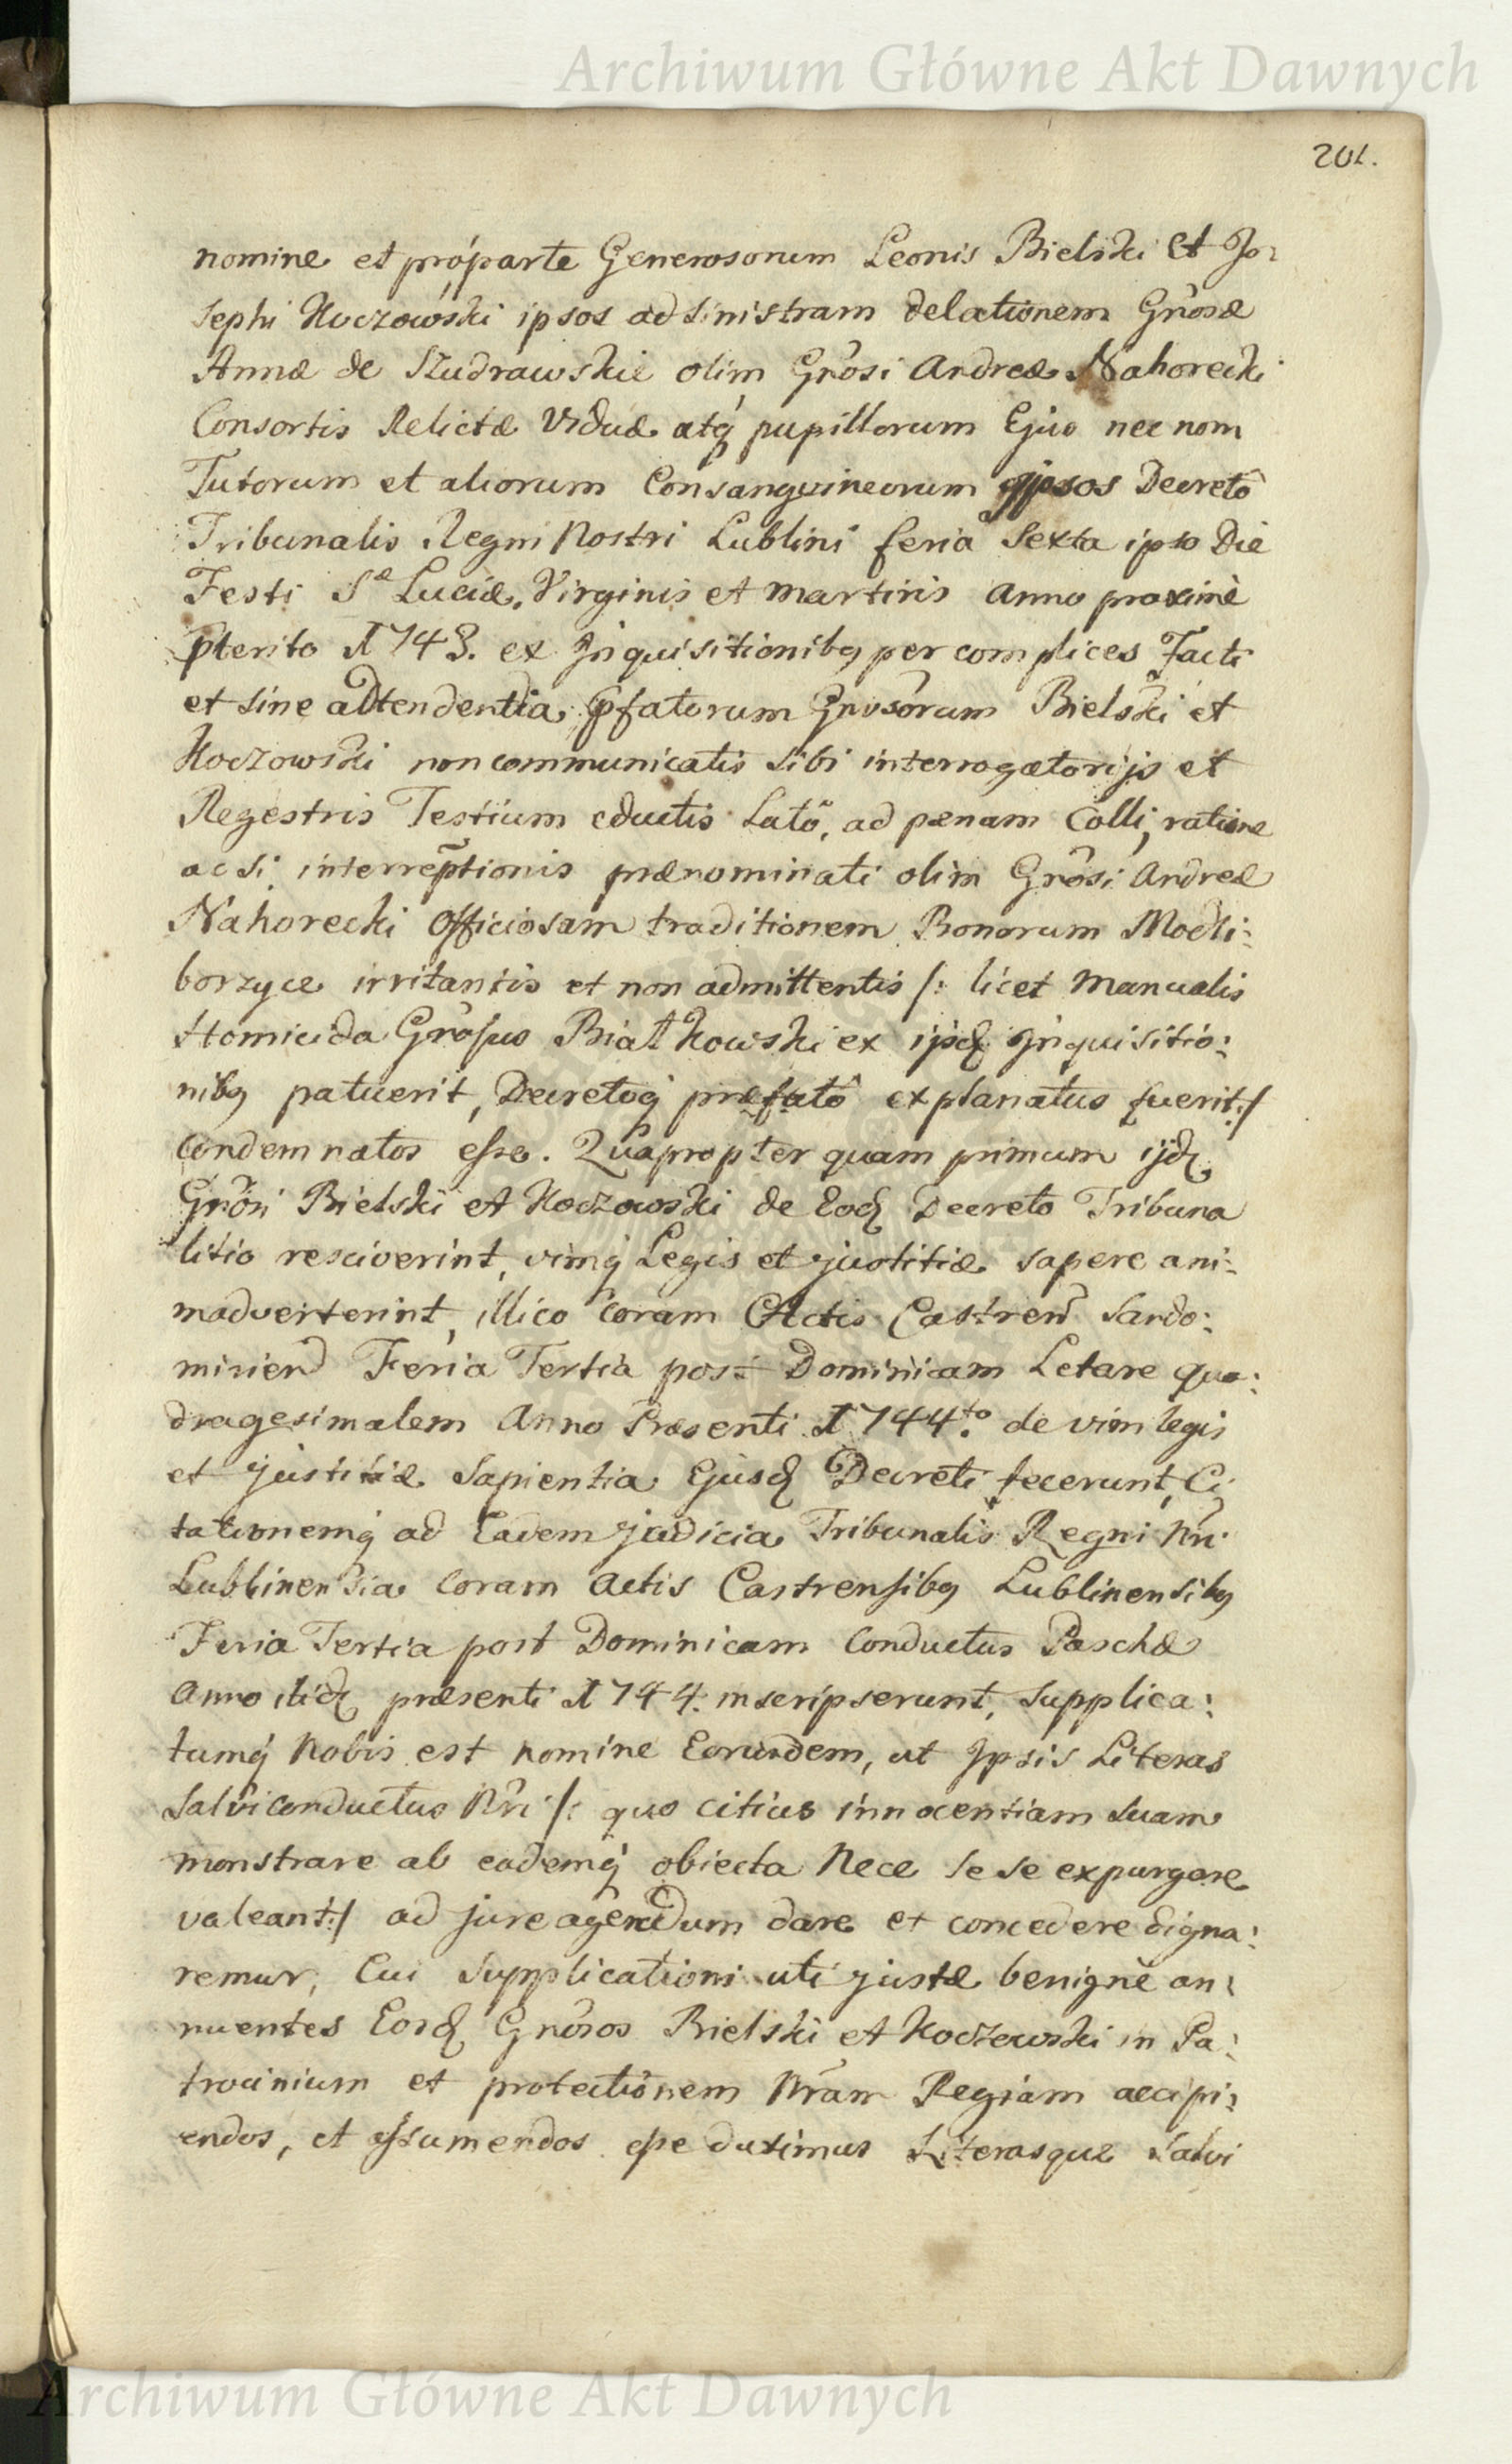 Archiwum Główne Akt Dawnych
201.
nomine et pro parte Generosorum Leonis Bielski et Jo:
sephi Koczowski ipsos ad sinistram delationem Grosæ
Annæ de Szudrawskie olim Grosi Andreæ Nahorecki
Consortis Relictæ Viduæ atq́ pupillorum Ejus nec non
Tutorum et aliorum Consanguineorum ipsos Decretô
Tribunalis Regni Nostri Lublini feria Sexta ipso Die
Festi Sæ Luciæ Virginis et Martiris Anno proximè
pterito 1743. ex Inquisitionibꝯ per complices Facti
et sine adtendentia pfatorum Gnosorum Bielski et
Koczowski non communicatis sibi interrogatorijs et
Regestris Testium eductis Latô, ad pænam Colli, ratione
ac si interremptionis prænominati olim Grosi Andreæ
Nahorecki Officiosam traditionem Bonorum Modli:
borzyce irritantis et non admittentis /: licet Manualis
Homicida Grosus Białkowski ex ijsd Inquisitio:
nibꝯ patuerit, Decretoq́ præfatô explanatus fuerit:/
Condemnatos esse. Quapropter quam primum ijd
Grosi Bielski et Koczowski de Eod Decreto Tribuna
litio resciverint, vimq́ Legis et justitiæ sapere ani:
madverterint, illico Coram Actis Castren Sando:
mirien Feria Tertia post Dominicam Letare qua:
dragesimalem Anno Præsenti 1744to. de vim legis
et justitiæ Sapientia Ejusd Decreti fecerunt, Ci
tationemq́ ad Eadem judicia Tribunalis Regni Nri
Lublinensia Coram Actis Castrensibꝯ Lublinensibꝯ
Feria Tertia post Dominicam Conductus Paschæ
Anno itid præsenti 1744. inscripserunt, Supplica:
tumq́ Nobis est nomine Eorundem, ut Ipsis Literas
Salvi conductus Nri /: quo citius innocentiam suam
monstrare ab eademq́ obiecta Nece se se expurgare
valeant:/ ad jure agendum dare et concedere digna:
remur, Cui Supplicationi uti justæ benignè an:
nuentes Eosd Gnosos Bielski et Koczewski in Pa:
trocinium et protectionem Nram Regiam accipi:
endos, et assumendos esse duximus Literasque Salvi
Archiwum Główne Akt Dawnych